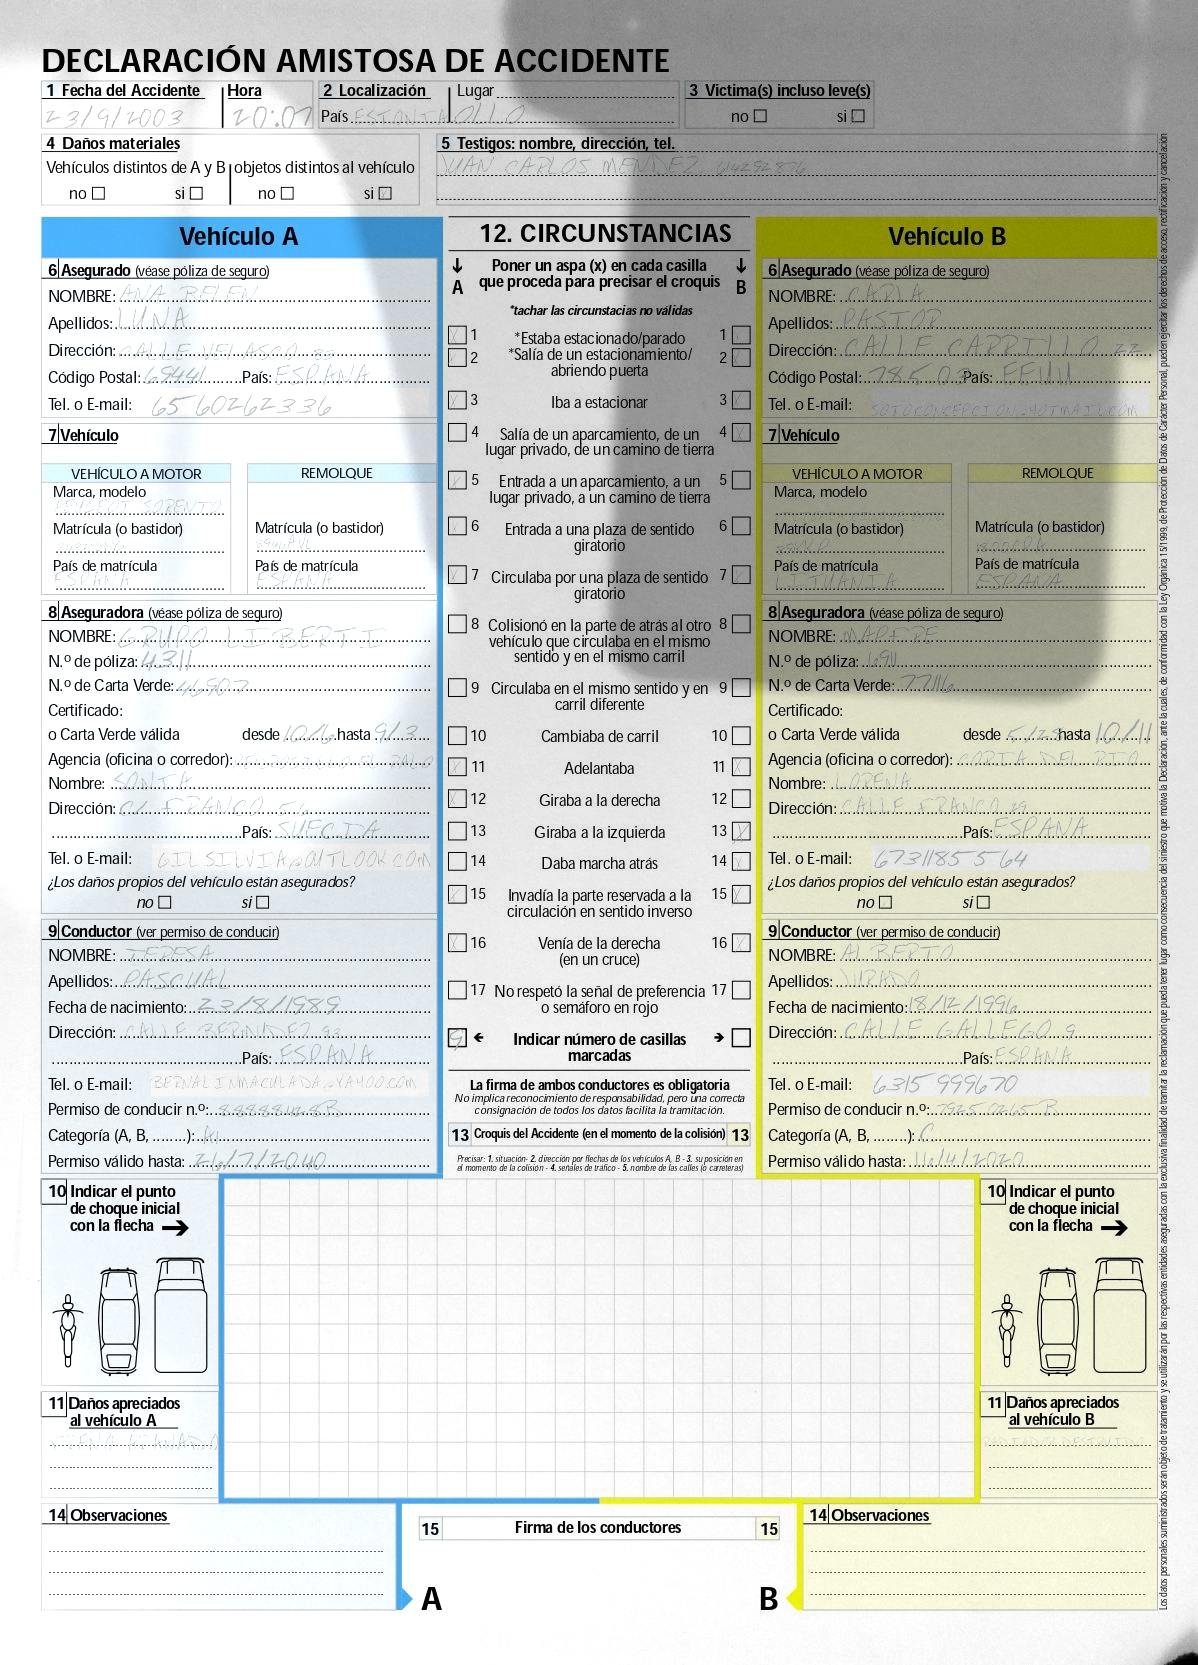 DECLARACIÓN AMISTOSA DE ACCIDENTE
1 Fecha del Accidente Hora 2 Localización Lugar 3 Victima(s) incluso leve(s)
23/9/2003 20:07 País ESTONIA OLLO no si
4 Daños materiales 5 Testigos: nombre, dirección, tel.
Vehículos distintos de A y B objetos distintos al vehículo JUAN CARLOS MENDEZ,
no si no si
Vehículo A
6 Asegurado (véase póliza de seguro)
NOMBRE: ANA BELEN
Apellidos: LUNA
Dirección: CALLE VELASCO
Código Postal: 69441 País: ESPAÑA
Tel. o E-mail: 6560262336
7 Vehículo
VEHÍCULO A MOTOR REMOLQUE
Marca, modelo
PEUGEOT SORENTO
Matrícula (o bastidor) Matrícula (o bastidor)
País de matrícula País de matrícula
ESPAÑA ESPAÑA
8 Aseguradora (véase póliza de seguro)
NOMBRE: GRUPO LIBERTI
N.º de póliza: 4311
N.º de Carta Verde: 46907
Certificado:
o Carta Verde válida desde 10/6 hasta 9/3
Agencia (oficina o corredor):
Nombre: SONIA
Dirección: C/ FRANCO 56
País: SUECIA
Tel. o E-mail: GILSILVIA@OUTLOOK.COM
¿Los daños propios del vehículo están asegurados?
no si
9 Conductor (ver permiso de conducir)
NOMBRE: TERESA
Apellidos: PASCUAL
Fecha de nacimiento: 23/8/1989
Dirección: CALLE BERMUDEZ 93
País: ESPAÑA
Tel. o E-mail: BERNALINMACULADA@YAHOO.COM
Permiso de conducir n.º:
Categoría (A, B, ........): A1
Permiso válido hasta: 26/7/2040
10 Indicar el punto
de choque inicial
con la flecha
11 Daños apreciados
al vehículo A
14 Observaciones
12. CIRCUNSTANCIAS
Poner un aspa (x) en cada casilla
A que proceda para precisar el croquis B
*tachar las circunstacias no válidas
1 *Estaba estacionado/parado 1
2 *Salía de un estacionamiento/ 2
abriendo puerta
3 Iba a estacionar 3
4 Salía de un aparcamiento, de un 4
lugar privado, de un camino de tierra
5 Entrada a un aparcamiento, a un 5
lugar privado, a un camino de tierra
6 Entrada a una plaza de sentido 6
giratorio
7 Circulaba por una plaza de sentido 7
giratorio
8 Colisionó en la parte de atrás al otro 8
vehículo que circulaba en el mismo
sentido y en el mismo carril
9 Circulaba en el mismo sentido y en 9
carril diferente
10 Cambiaba de carril 10
11 Adelantaba 11
12 Giraba a la derecha 12
13 Giraba a la izquierda 13
14 Daba marcha atrás 14
15 Invadía la parte reservada a la 15
circulación en sentido inverso
16 Venía de la derecha 16
(en un cruce)
17 No respetó la señal de preferencia 17
o semáforo en rojo
9 Indicar número de casillas
marcadas
La firma de ambos conductores es obligatoria
No implica reconocimiento de responsabilidad, pero una correcta
consignación de todos los datos facilita la tramitación.
13 Croquis del Accidente (en el momento de la colisión) 13
Precisar: 1. situación- 2. dirección por flechas de los vehículos A, B - 3. su posición en
el momento de la colisión - 4. señales de tráfico - 5. nombre de las calles (o carreteras)
15 Firma de los conductores 15
A B
Vehículo B
6 Asegurado (véase póliza de seguro)
NOMBRE: CARLA
Apellidos: PASTOR
Dirección: CALLE CARRILLO 22
Código Postal: 78503 País: EEUU
Tel. o E-mail: SOTOCONCEPCION@HOTMAIL.COM
7 Vehículo
VEHÍCULO A MOTOR REMOLQUE
Marca, modelo
Matrícula (o bastidor) Matrícula (o bastidor)
País de matrícula País de matrícula
LITUANIA ESPAÑA
8 Aseguradora (véase póliza de seguro)
NOMBRE: MAPFRE
N.º de póliza: 6911
N.º de Carta Verde: 77116
Certificado:
o Carta Verde válida desde 5/12 hasta 10/11
Agencia (oficina o corredor): CORIA DEL RIO
Nombre: LORENA
Dirección: CALLE FRANCO 39
País: ESPAÑA
Tel. o E-mail: 6731185564
¿Los daños propios del vehículo están asegurados?
no si
9 Conductor (ver permiso de conducir)
NOMBRE: ALBERTO
Apellidos: JURADO
Fecha de nacimiento: 18/12/1996
Dirección: CALLE GALLEGO 9
País: ESPAÑA
Tel. o E-mail: 6315999670
Permiso de conducir n.º: 79250265B
Categoría (A, B, ........): C
Permiso válido hasta: 16/4/2020
10 Indicar el punto
de choque inicial
con la flecha
11 Daños apreciados
al vehículo B
RADIADOR DESTRUIDO
14 Observaciones
Los datos personales suministrados serán objeto de tratamiento y se utilizarán por las respectivas entidades aseguradas con la exclusiva finalidad de tramitar la reclamación que pueda tener lugar como consecuencia del siniestro que motiva la Declaración, ante la cuales, de conformidad con la Ley Orgánica 15/1999, de Protección de Datos de Carácter Personal, pueden ejercitar los derechos de acceso, rectificación y cancelación